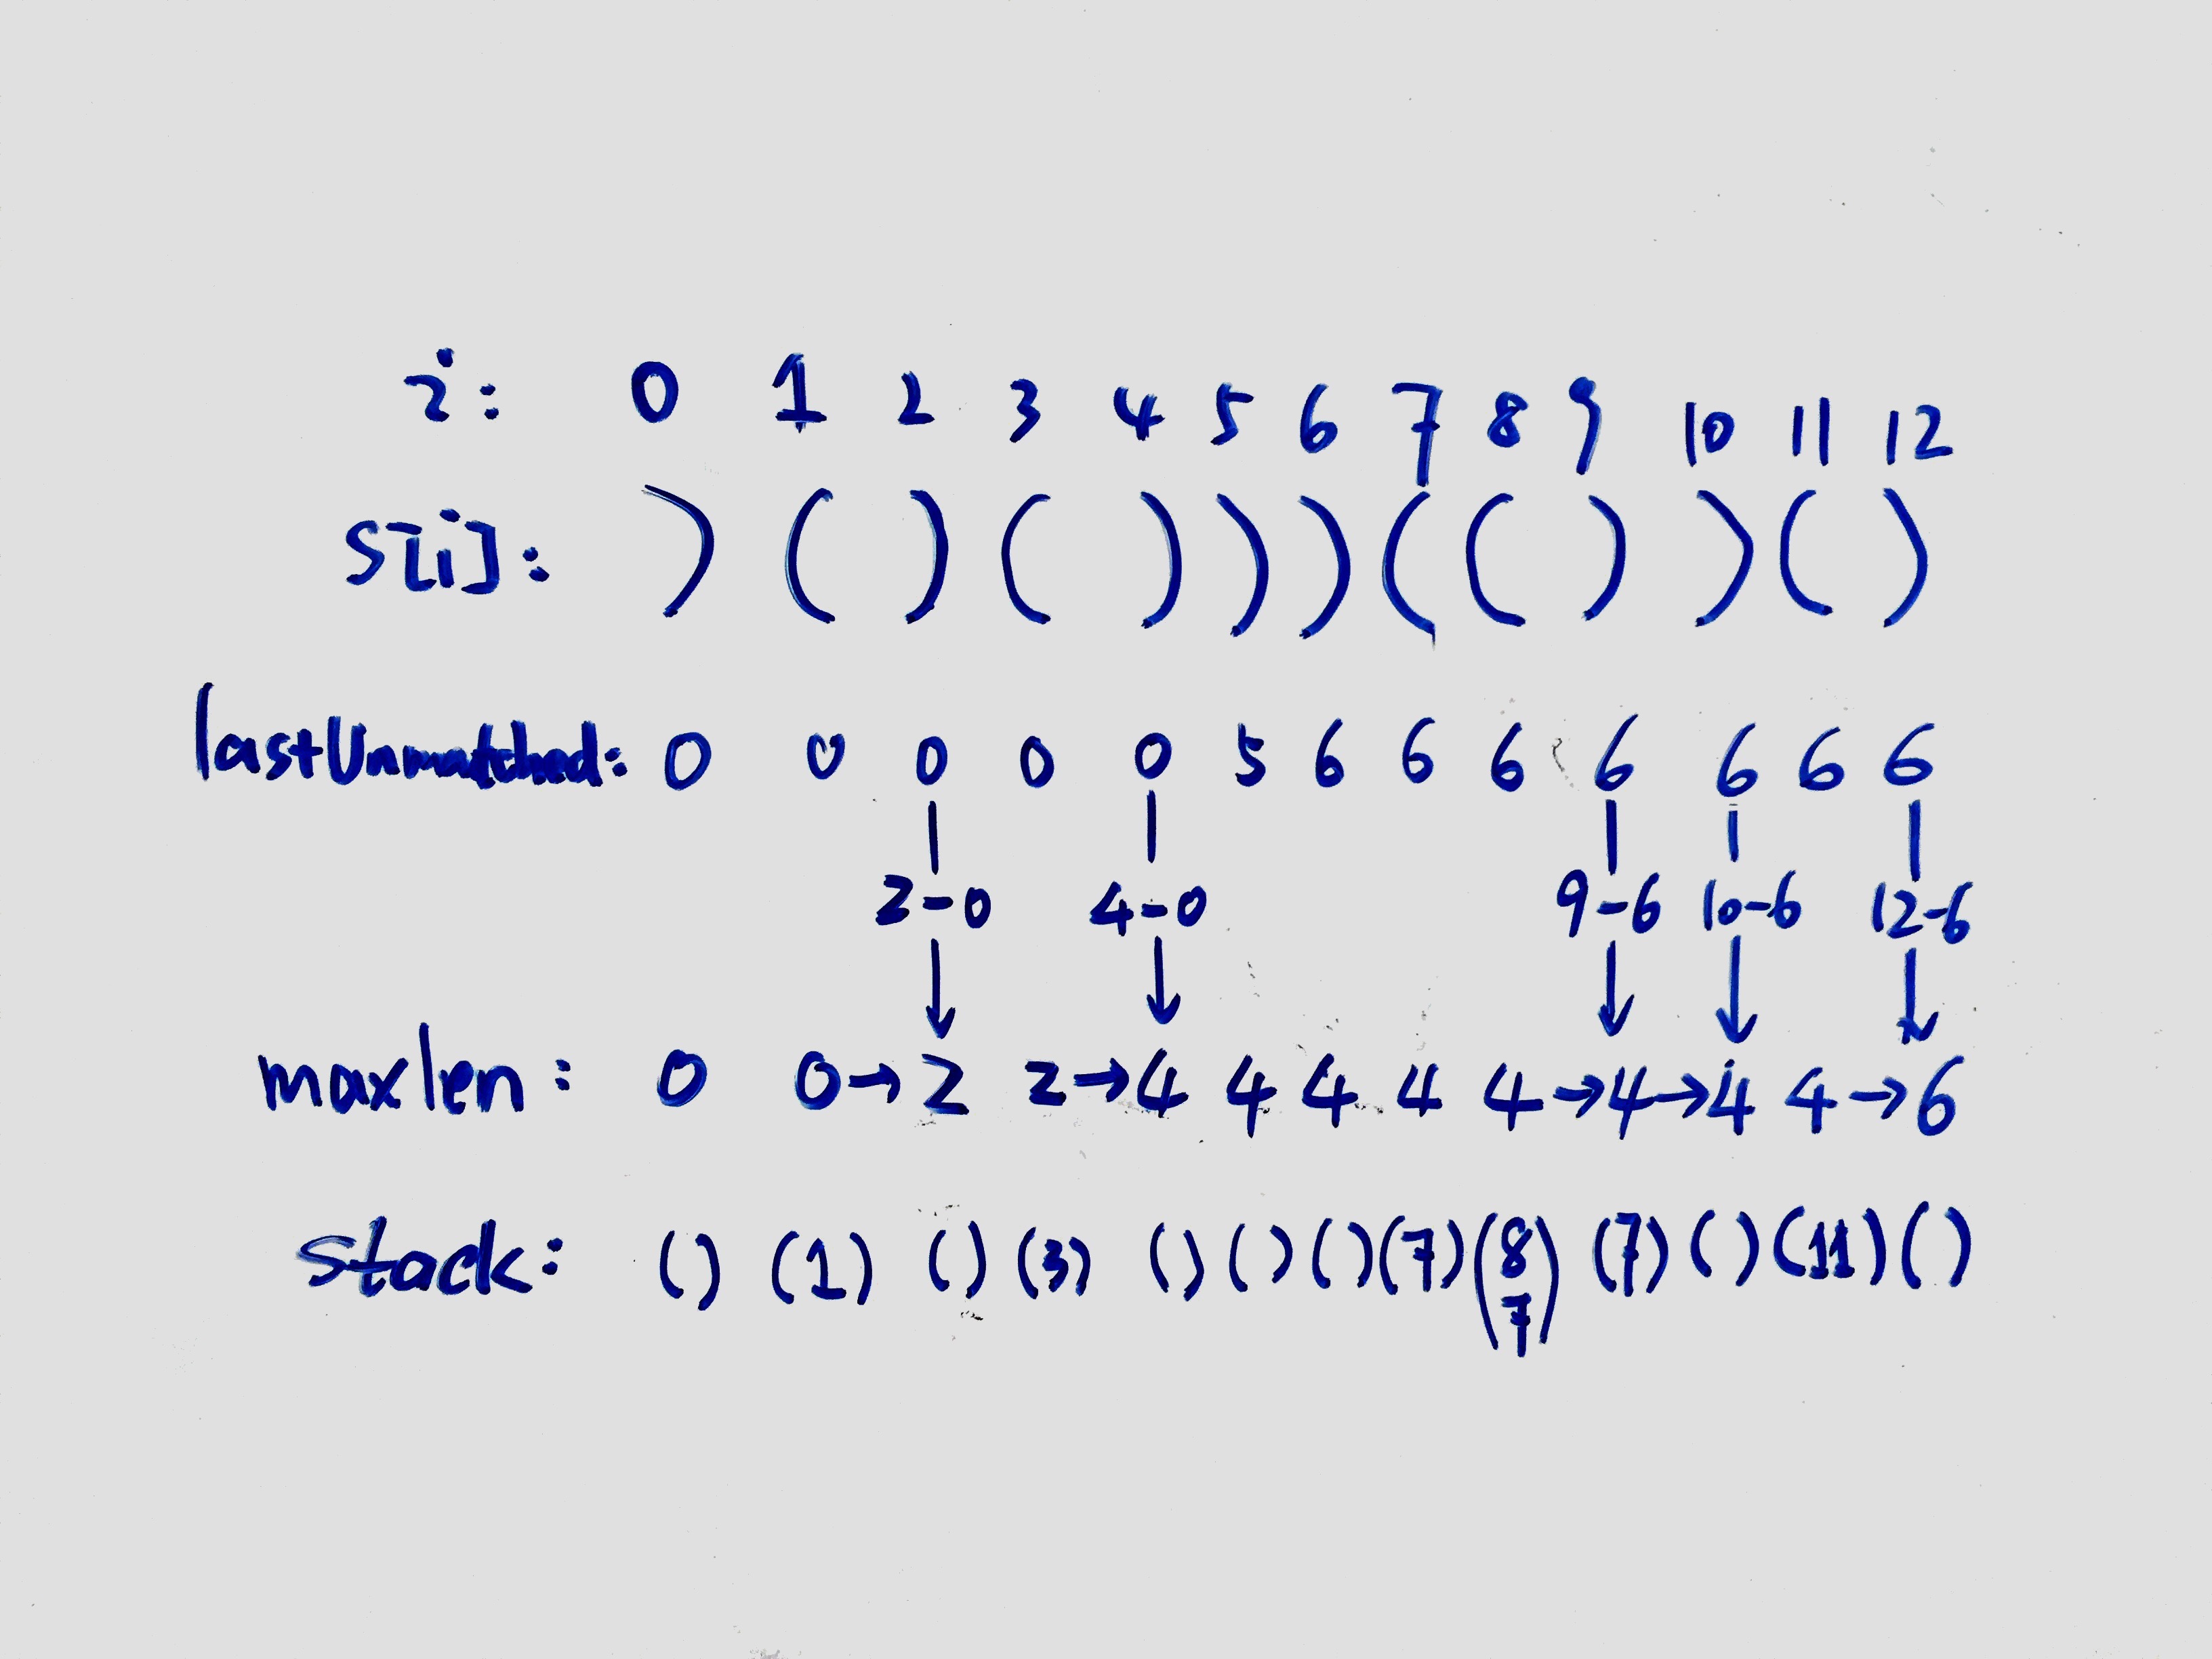 i: 0 1 2 3 4 5 6 7 8 9 10 11 12
s[i]: ) ( ) ( ) ) ) ( ( ) ) ( )
lastUnmatched: 0 0 0 0 0 5 6 6 6 6 6 6 6
2-0 4-0 9-6 10-6 12-6
maxlen: 0 0→2 2→4 4 4 4 4→4→4 4→6
stack: () (1) () (3) () () () (7) (8 7) (7) () (11) ()